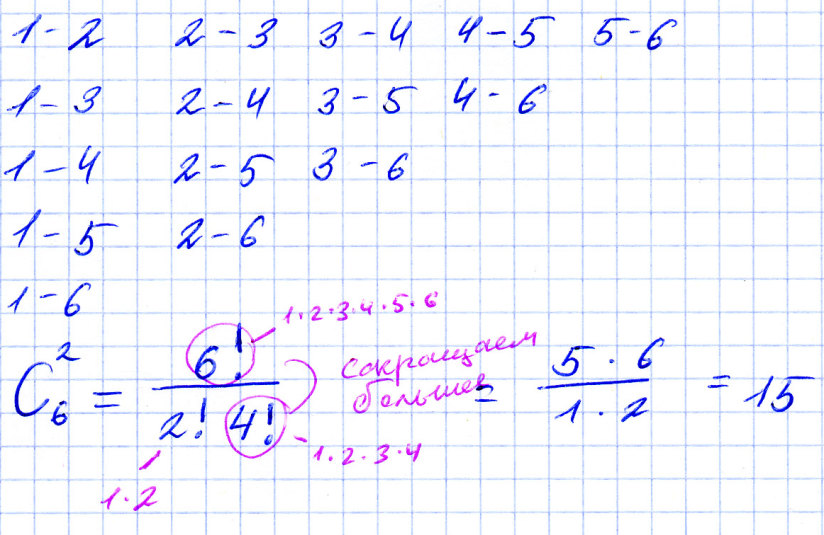 1-2 2-3 3-4 4-5 5-6
1-3 2-4 3-5 4-6
1-4 2-5 3-6
1-5 2-6
1-6
1·2·3·4·5·6
C₆² = 6! / 2! 4! = 5·6 / 1·2 = 15
сокращаем
большее
1·2·3·4
1·2